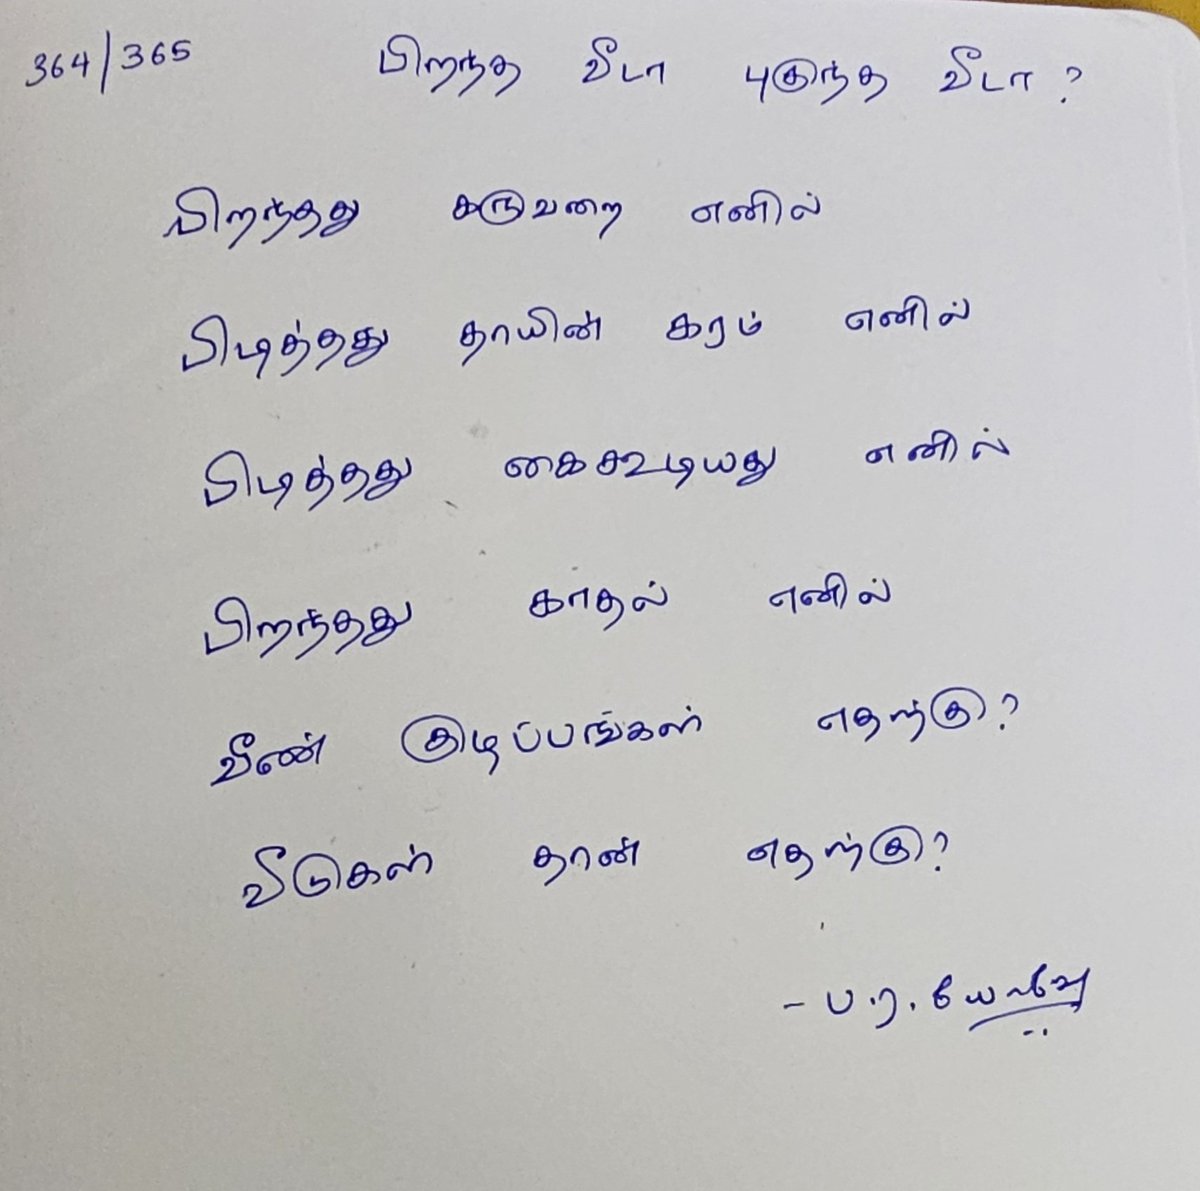 364/365 பிறந்த வீடா புகுந்த வீடா?
பிறந்தது கருவறை எனில்
பிடித்தது தாயின் கரம் எனில்
பிடித்தது கைகூடியது எனில்
பிறந்தது காதல் எனில்
வீண் குழப்பங்கள் எதற்கு?
வீடுகள் தான் எதற்கு?
- ப.ர.